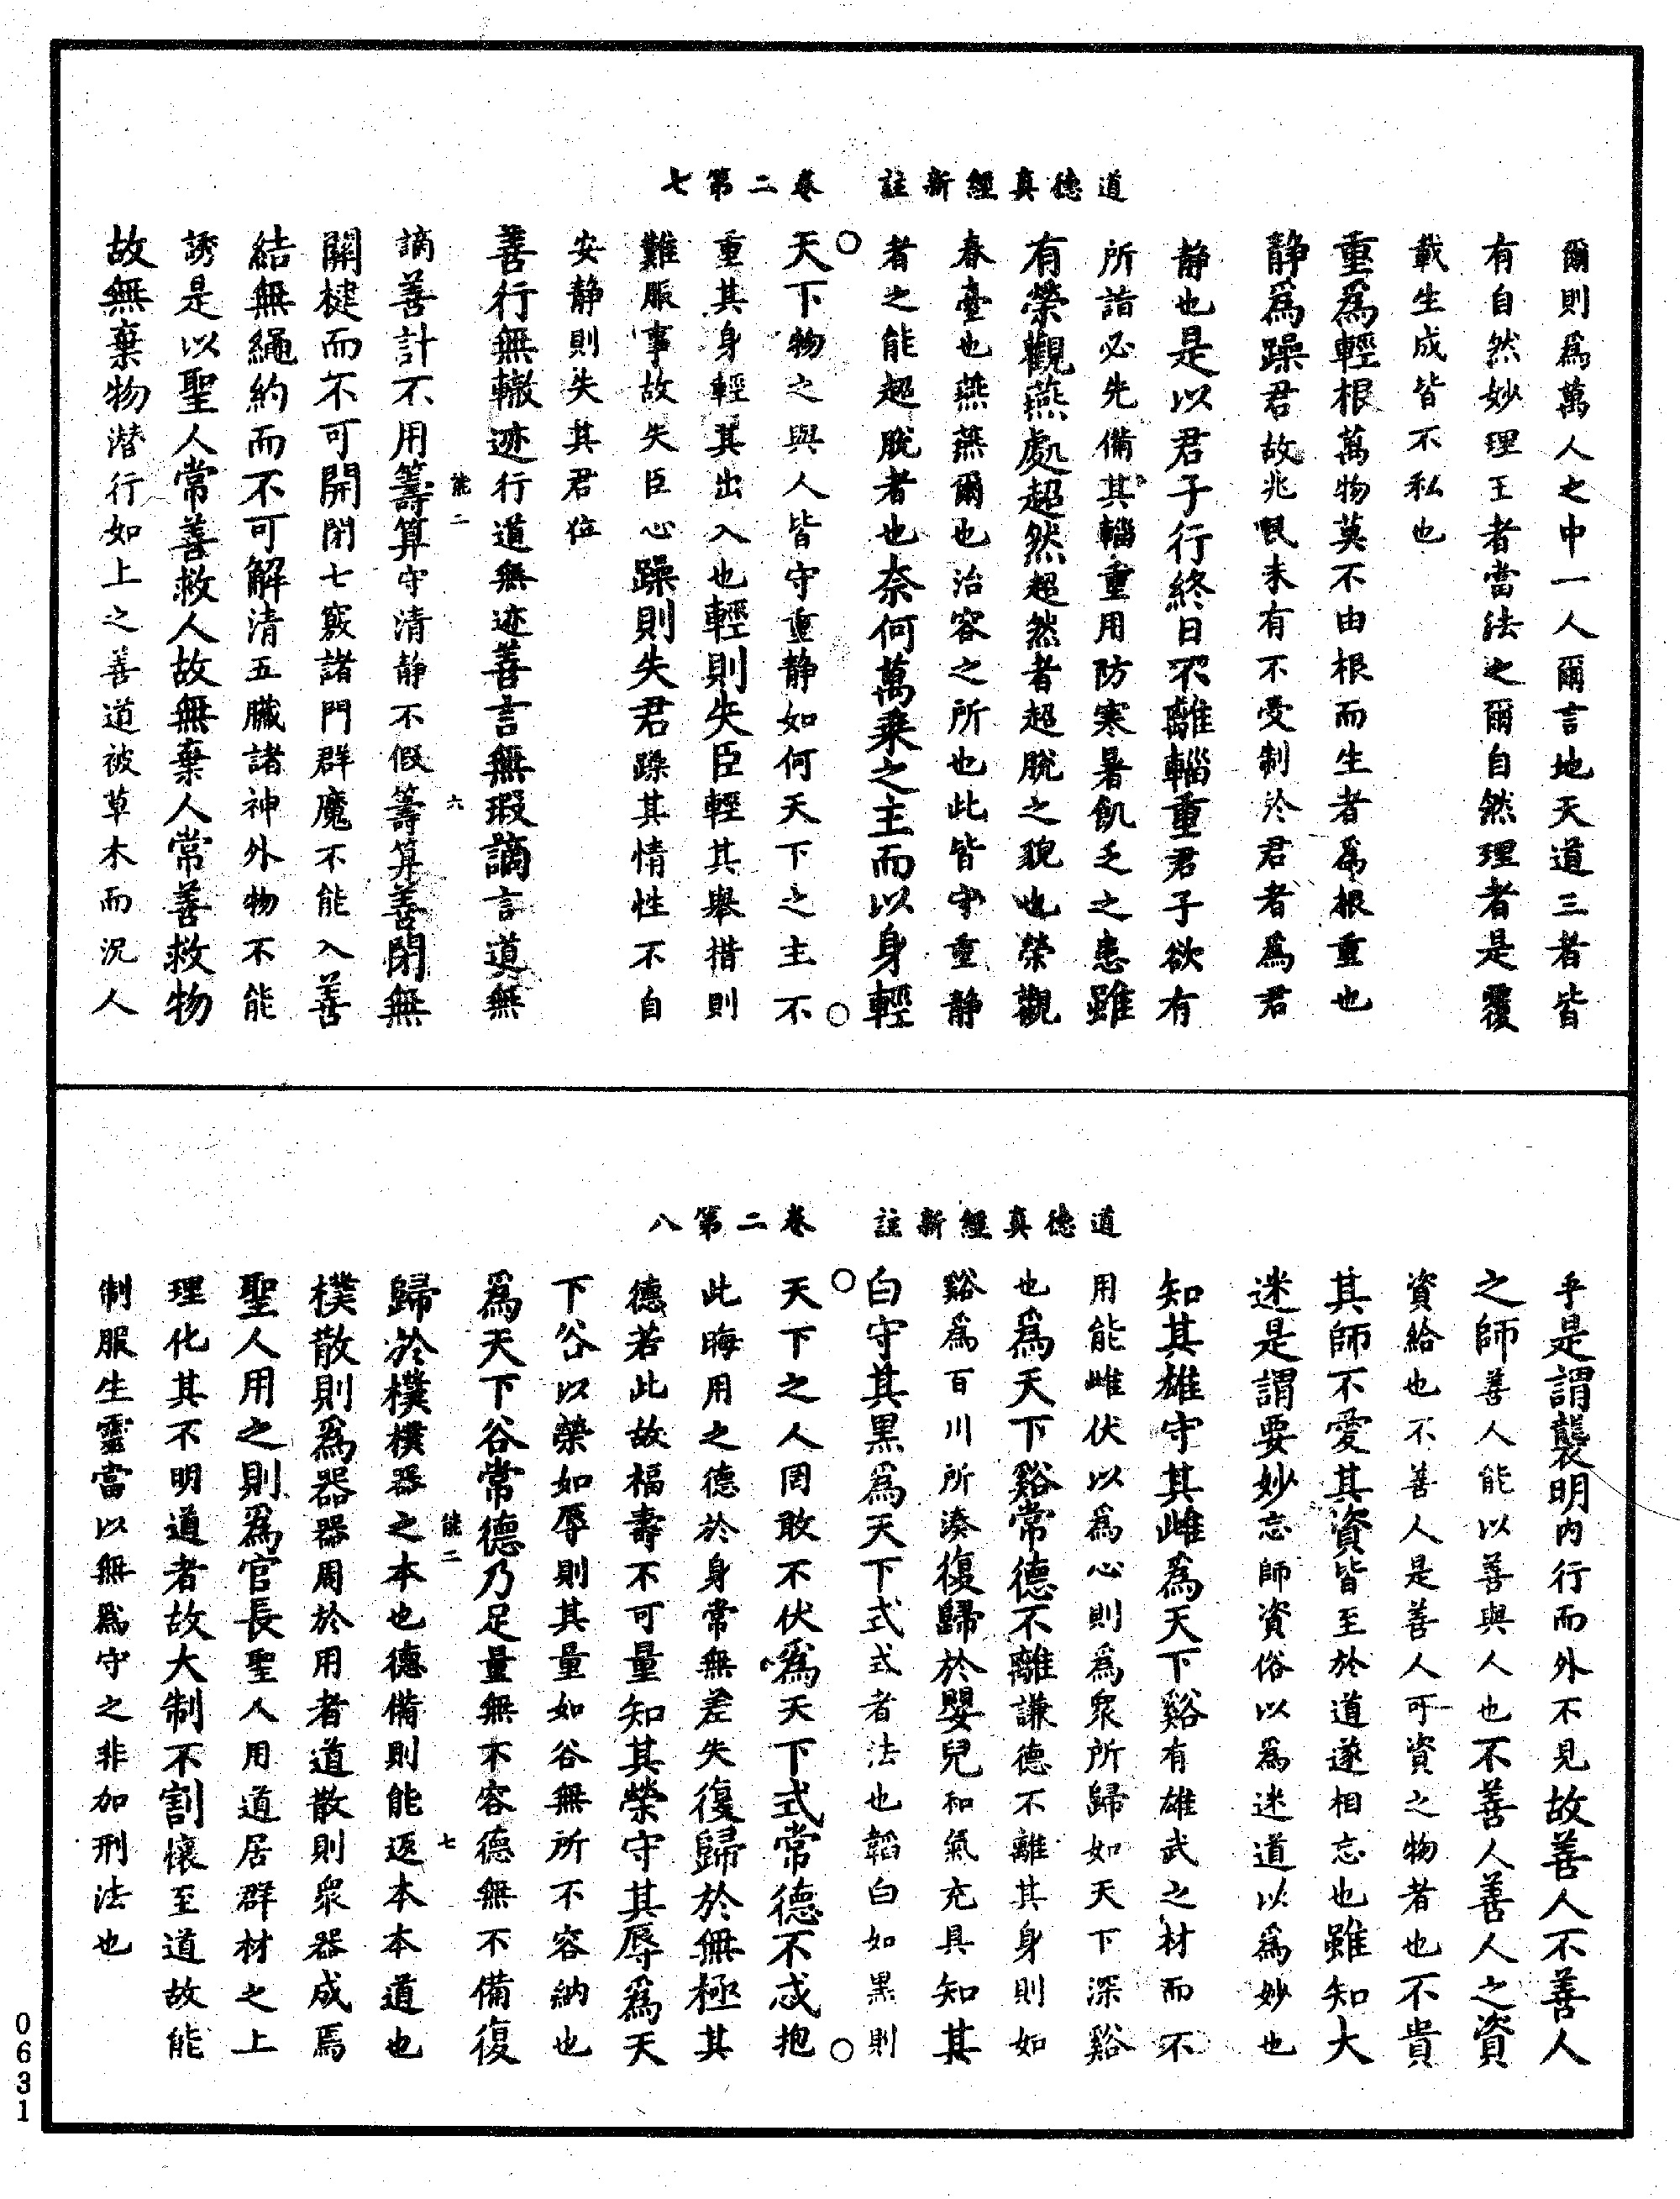 道德真經新註　卷二第七
爾則爲萬人之中一人爾言地天道三者皆
有自然妙理王者當法之爾自然理者是覆
載生成皆不私也
重爲輕根萬物莫不由根而生者爲根重也
靜爲躁君君故兆民未有不受制於君者爲君
靜也是以君子行終日不離輜重君子欲有
所詣必先備其輜重用防寒暑飢乏之患雖
有榮觀燕處超然超然者超脫之貌也榮觀
春臺也燕燕爾也冶容之所也此皆守重靜
者之能超脫者也奈何萬乘之主而以身輕
天下物之與人皆守重靜如何天下之主不
重其身輕其出入也輕則失臣輕其舉措則
難服事故失臣心躁則失君躁其情性不自
安靜則失其君位
善行無轍迹行道無迹善言無瑕謫言道無
謫善計不用籌算守清靜不假籌算善閉無
關楗而不可開閉七竅諸門群魔不能入善
結無繩約而不可解清五臟諸神外物不能
誘是以聖人常善救人故無棄人常善救物
故無棄物潛行如上之善道被草木而況人
能二　六
道德真經新註　卷二第八
乎是謂襲明內行而外不見故善人不善人
之師善人能以善與人也不善人善人之資
資給也不善人是善人可資之物者也不貴
其師不愛其資皆至於道遂相忘也雖知大
迷是謂要妙忘師資俗以爲迷道以爲妙也
知其雄守其雌爲天下谿有雄武之材而不
用能雌伏以爲心則爲眾所歸如天下深谿
也爲天下谿常德不離謙德不離其身則如
谿爲百川所湊復歸於嬰兒和氣充具知其
白守其黑爲天下式式者法也韜白如黑則
天下之人罔敢不伏爲天下式常德不忒抱
此晦用之德於身常無差失復歸於無極其
德若此故福壽不可量知其榮守其辱爲天
下谷以榮如辱則其量如谷無所不容納也
爲天下谷常德乃足量無不容德無不備復
歸於樸樸器之本也德備則能返本本道也
樸散則爲器器用於用者道散則眾器成焉
聖人用之則爲官長聖人用道居群材之上
理化其不明道者故大制不割懷至道故能
制服生靈當以無爲守之非加刑法也
能二　七
0631